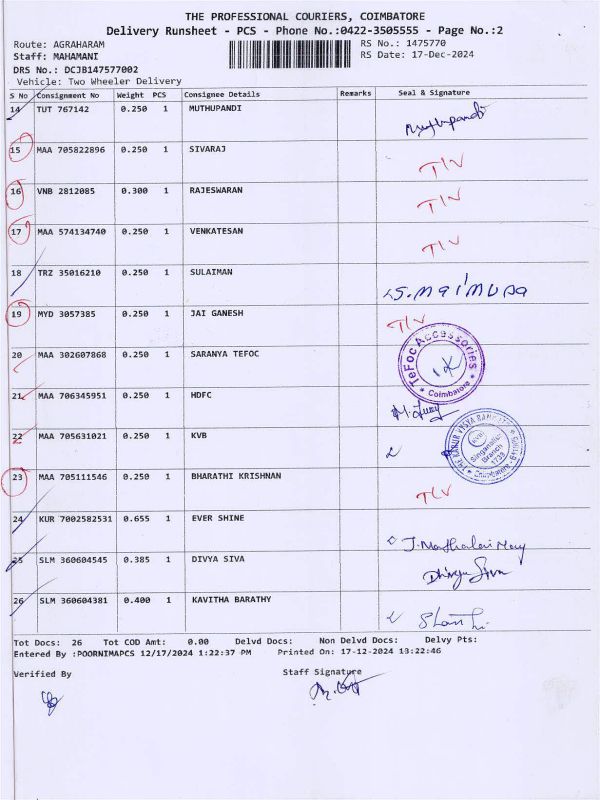 THE PROFESSIONAL COURIERS, COIMBATORE
Delivery Runsheet - PCS - Phone No.:0422-3505555 - Page No.:2
Route: AGRAHARAM RS No.: 1475770
Staff: MAHAMANI RS Date: 17-Dec-2024
DRS No.: DCJB147577002
Vehicle: Two Wheeler Delivery
S No Consignment No Weight PCS Consignee Details Remarks Seal & Signature
14 TUT 767142 0.250 1 MUTHUPANDI Muthupandi
15 MAA 705822896 0.250 1 SIVARAJ T/V
16 VNB 2812085 0.300 1 RAJESWARAN T/V
17 MAA 574134740 0.250 1 VENKATESAN T/V
18 TRZ 35016210 0.250 1 SULAIMAN S.MAIMUNA
19 MYD 3057385 0.250 1 JAI GANESH T/V
20 MAA 302607868 0.250 1 SARANYA TEFOC TeFoc Accessories * Coimbatore *
21 MAA 706345951 0.250 1 HDFC
22 MAA 705631021 0.250 1 KVB THE KARUR VYSYA BANK Singanallur Branch 1738 Coimbatore
23 MAA 705111546 0.250 1 BHARATHI KRISHNAN T/V
24 KUR 7002582531 0.655 1 EVER SHINE
25 SLM 360604545 0.385 1 DIVYA SIVA Dhivya Siva
26 SLM 360604381 0.400 1 KAVITHA BARATHY Shanthi
Tot Docs: 26 Tot COD Amt: 0.00 Delvd Docs: Non Delvd Docs: Delvy Pts:
Entered By :POORNIMAPCS 12/17/2024 1:22:37 PM Printed On: 17-12-2024 13:22:46
Verified By Staff Signature